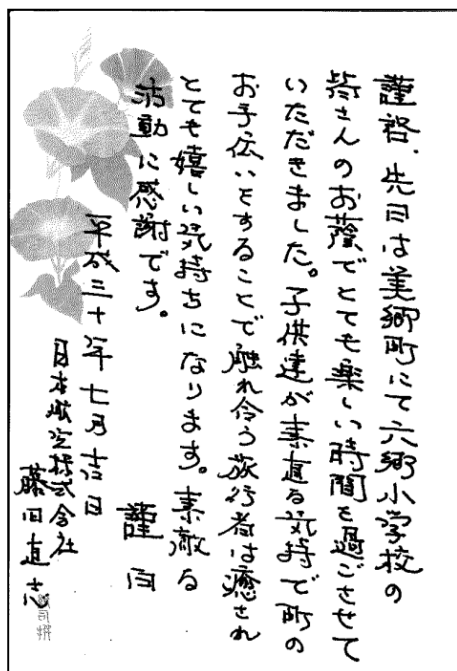 謹啓、先日は美郷町にて六郷小学校の
皆さんのお蔭でとても楽しい時間を過ごさせて
いただきました。子供達が素直な気持で町の
お手伝いをすることで触れ合う旅行者は癒され
とても嬉しい気持ちになります。素敵な
活動に感謝です。
謹白
平成三十年七月吉日
日本航空株式会社
藤田直志